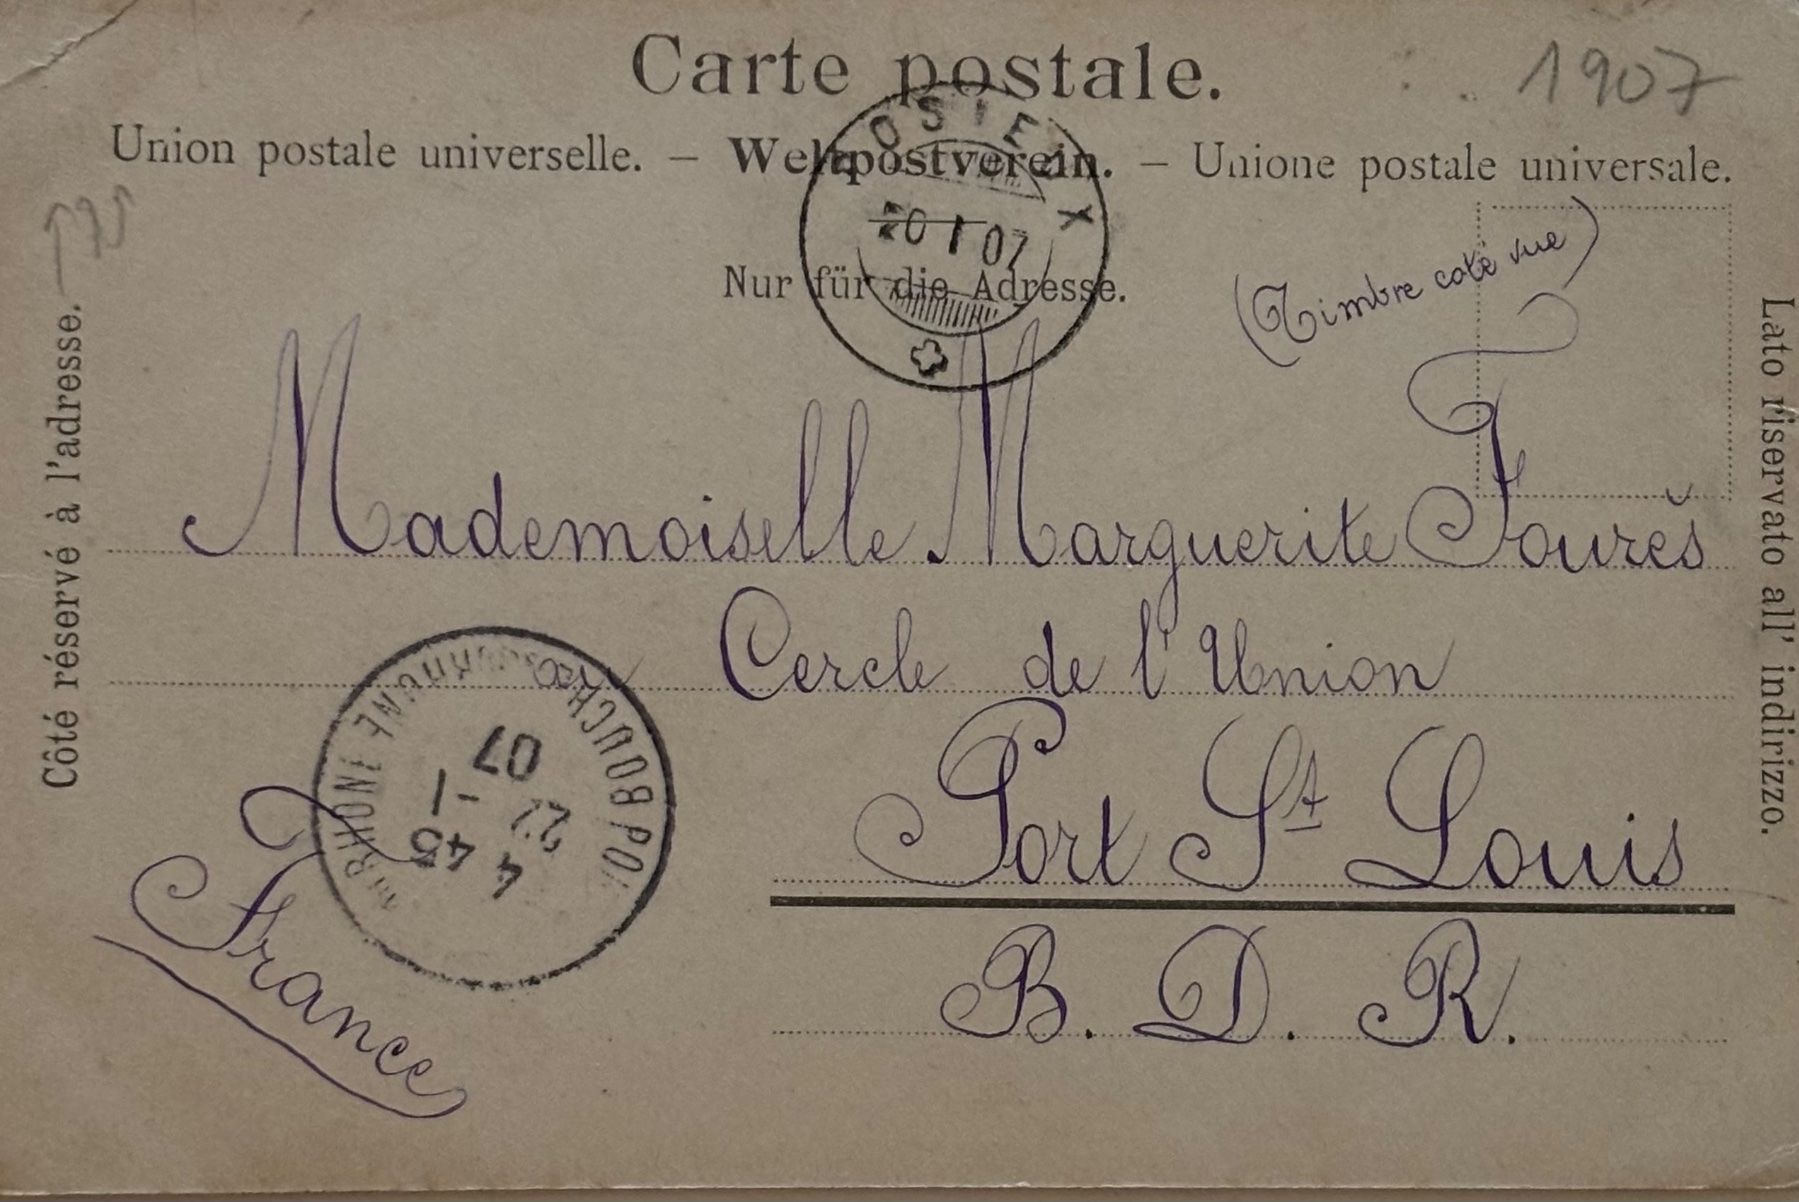 Carte postale.
1907
Union postale universelle. – Weltpostverein. – Unione postale universale.
Nur für die Adresse.
20 I 07
(Timbre coté vue)
Côté réservé à l'adresse.
Lato riservato all' indirizzo.
Mademoiselle Marguerite Fourès
Cercle de l'Union
Port St Louis
B. D. R.
France
BOUCHES DU RHONE
4 45
27 -1
07